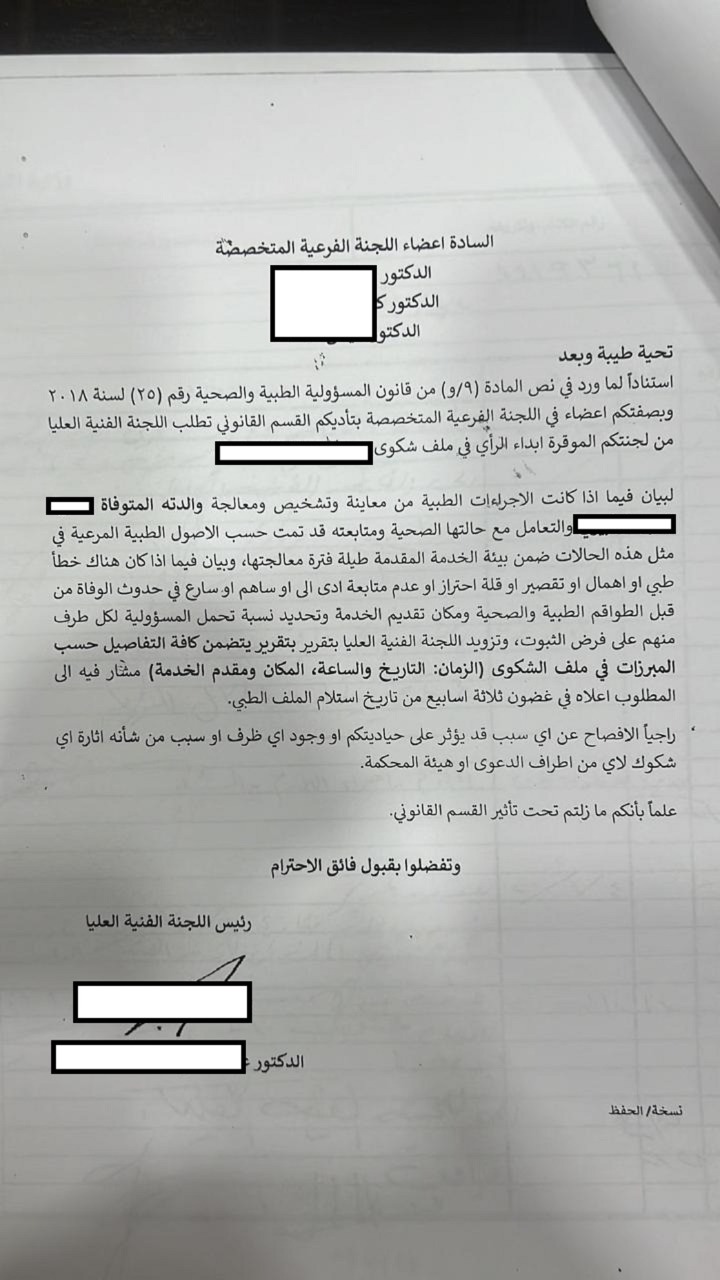 السادة اعضاء اللجنة الفرعية المتخصصة
الدكتور
الدكتور
الدكتور
تحية طيبة وبعد
استناداً لما ورد في نص المادة (٩/و) من قانون المسؤولية الطبية والصحية رقم (٢٥) لسنة ٢٠١٨
وبصفتكم اعضاء في اللجنة الفرعية المتخصصة بتأديكم القسم القانوني تطلب اللجنة الفنية العليا
من لجنتكم الموقرة ابداء الرأي في ملف شكوى
لبيان فيما اذا كانت الاجراءات الطبية من معاينة وتشخيص ومعالجة والدته المتوفاة
والتعامل مع حالتها الصحية ومتابعته قد تمت حسب الاصول الطبية المرعية في
مثل هذه الحالات ضمن بيئة الخدمة المقدمة طيلة فترة معالجتها، وبيان فيما اذا كان هناك خطأ
طبي او اهمال او تقصير او قلة احتراز او عدم متابعة ادى الى او ساهم او سارع في حدوث الوفاة من
قبل الطواقم الطبية والصحية ومكان تقديم الخدمة وتحديد نسبة تحمل المسؤولية لكل طرف
منهم على فرض الثبوت، وتزويد اللجنة الفنية العليا بتقرير بتقرير يتضمن كافة التفاصيل حسب
المبرزات في ملف الشكوى (الزمان: التاريخ والساعة، المكان ومقدم الخدمة) مشار فيه الى
المطلوب اعلاه في غضون ثلاثة اسابيع من تاريخ استلام الملف الطبي.
راجياً الافصاح عن اي سبب قد يؤثر على حياديتكم او وجود اي ظرف او سبب من شأنه اثارة اي
شكوك لاي من اطراف الدعوى او هيئة المحكمة.
علماً بأنكم ما زلتم تحت تأثير القسم القانوني.
وتفضلوا بقبول فائق الاحترام
رئيس اللجنة الفنية العليا
الدكتور
نسخة/ الحفظ